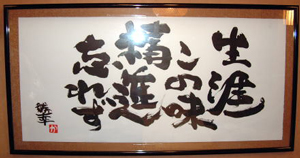 生涯
この味
精進
忘れず